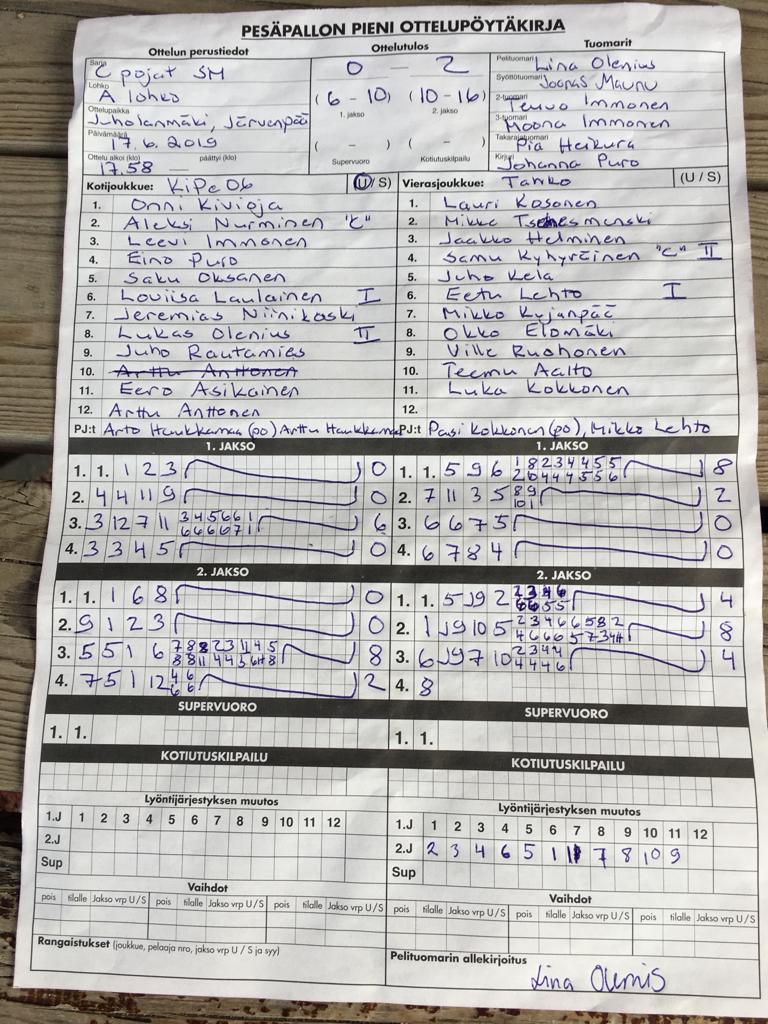 PESÄPALLON PIENI OTTELUPÖYTÄKIRJA
Ottelun perustiedot Ottelutulos Tuomarit
Sarja C pojat SM
Lohko A lohko
Ottelupaikka Juholanmäki, Järvenpää
Päivämäärä 17.6.2019
Ottelu alkoi (klo) 17.58 päättyi (klo) —
0 - 2
(6 - 10) (10 - 16)
1. jakso 2. jakso
( - ) ( - )
Supervuoro Kotiutuskilpailu
Pelituomari Liina Olenius
Syöttötuomari Joonas Maunu
2-tuomari Teuvo Immonen
3-tuomari Moona Immonen
Takarajatuomari Pia Heikura
Kirjuri Johanna Puro
Kotijoukkue: KiPe 06 (U/S)
1. Onni Kivioja
2. Aleksi Nurminen "C"
3. Leevi Immonen
4. Eino Puro
5. Saku Oksanen
6. Loviisa Laulainen I
7. Jeremias Niinikoski
8. Lukas Olenius II
9. Juho Rautamies
10. Arttu Anttonen
11. Eero Asikainen
12. Arttu Anttonen
PJ:t Arto Haukkamaa (po) Arttu Haukkamaa
Vierasjoukkue: Tahko (U/S)
1. Lauri Kosonen
2. Mikke
3. Jaakko Helminen
4. Samu Kyhyräinen "C" II
5. Juho Kela
6. Eetu Lehto I
7. Mikko Kujanpää
8. Okko Elomäki
9. Ville Ruohonen
10. Teemu Aalto
11. Luka Kokkonen
12.
PJ:t Pasi Kokkonen (po), Mikko Lehto
1. JAKSO
1. 1. 1 2 3 0
2. 4 4 11 9 0
3. 3 12 7 11 3 4 5 6 6 1 6
6 6 6 6 7 1
4. 3 3 4 5 0
2. JAKSO
1. 1. 1 6 8 0
2. 9 1 2 3 0
3. 5 5 1 6 8
4. 7 5 1 12 4 6 2
6 6
SUPERVUORO
1. 1.
KOTIUTUSKILPAILU
1. JAKSO
1. 1. 5 9 6 1 8 2 3 4 4 5 5 8
2 10 4 4 4 5 5 6
2. 7 11 3 5 8 9 2
10 1
3. 6 6 7 5 0
4. 6 7 8 4 0
2. JAKSO
1. 1. 5 J9 2 2 3 4 6 4
6 6 5 5
2. 1 J9 10 5 2 3 4 6 6 5 8 2 8
3. 6 J9 7 10 2 3 4 4 4
4 4 4 6
4. 8
SUPERVUORO
1. 1.
KOTIUTUSKILPAILU
Lyöntijärjestyksen muutos
1.J 1 2 3 4 5 6 7 8 9 10 11 12
2.J
Sup
Vaihdot
pois tilalle Jakso vrp U/S pois tilalle Jakso vrp U/S pois tilalle Jakso vrp U/S
Rangaistukset (joukkue, pelaaja nro, jakso vrp U / S ja syy)
Lyöntijärjestyksen muutos
1.J 1 2 3 4 5 6 7 8 9 10 11 12
2.J 2 3 4 6 5 1 11 7 8 10 9
Sup
Vaihdot
pois tilalle Jakso vrp U/S pois tilalle Jakso vrp U/S pois tilalle Jakso vrp U/S
Pelituomarin allekirjoitus
Liina Olenius